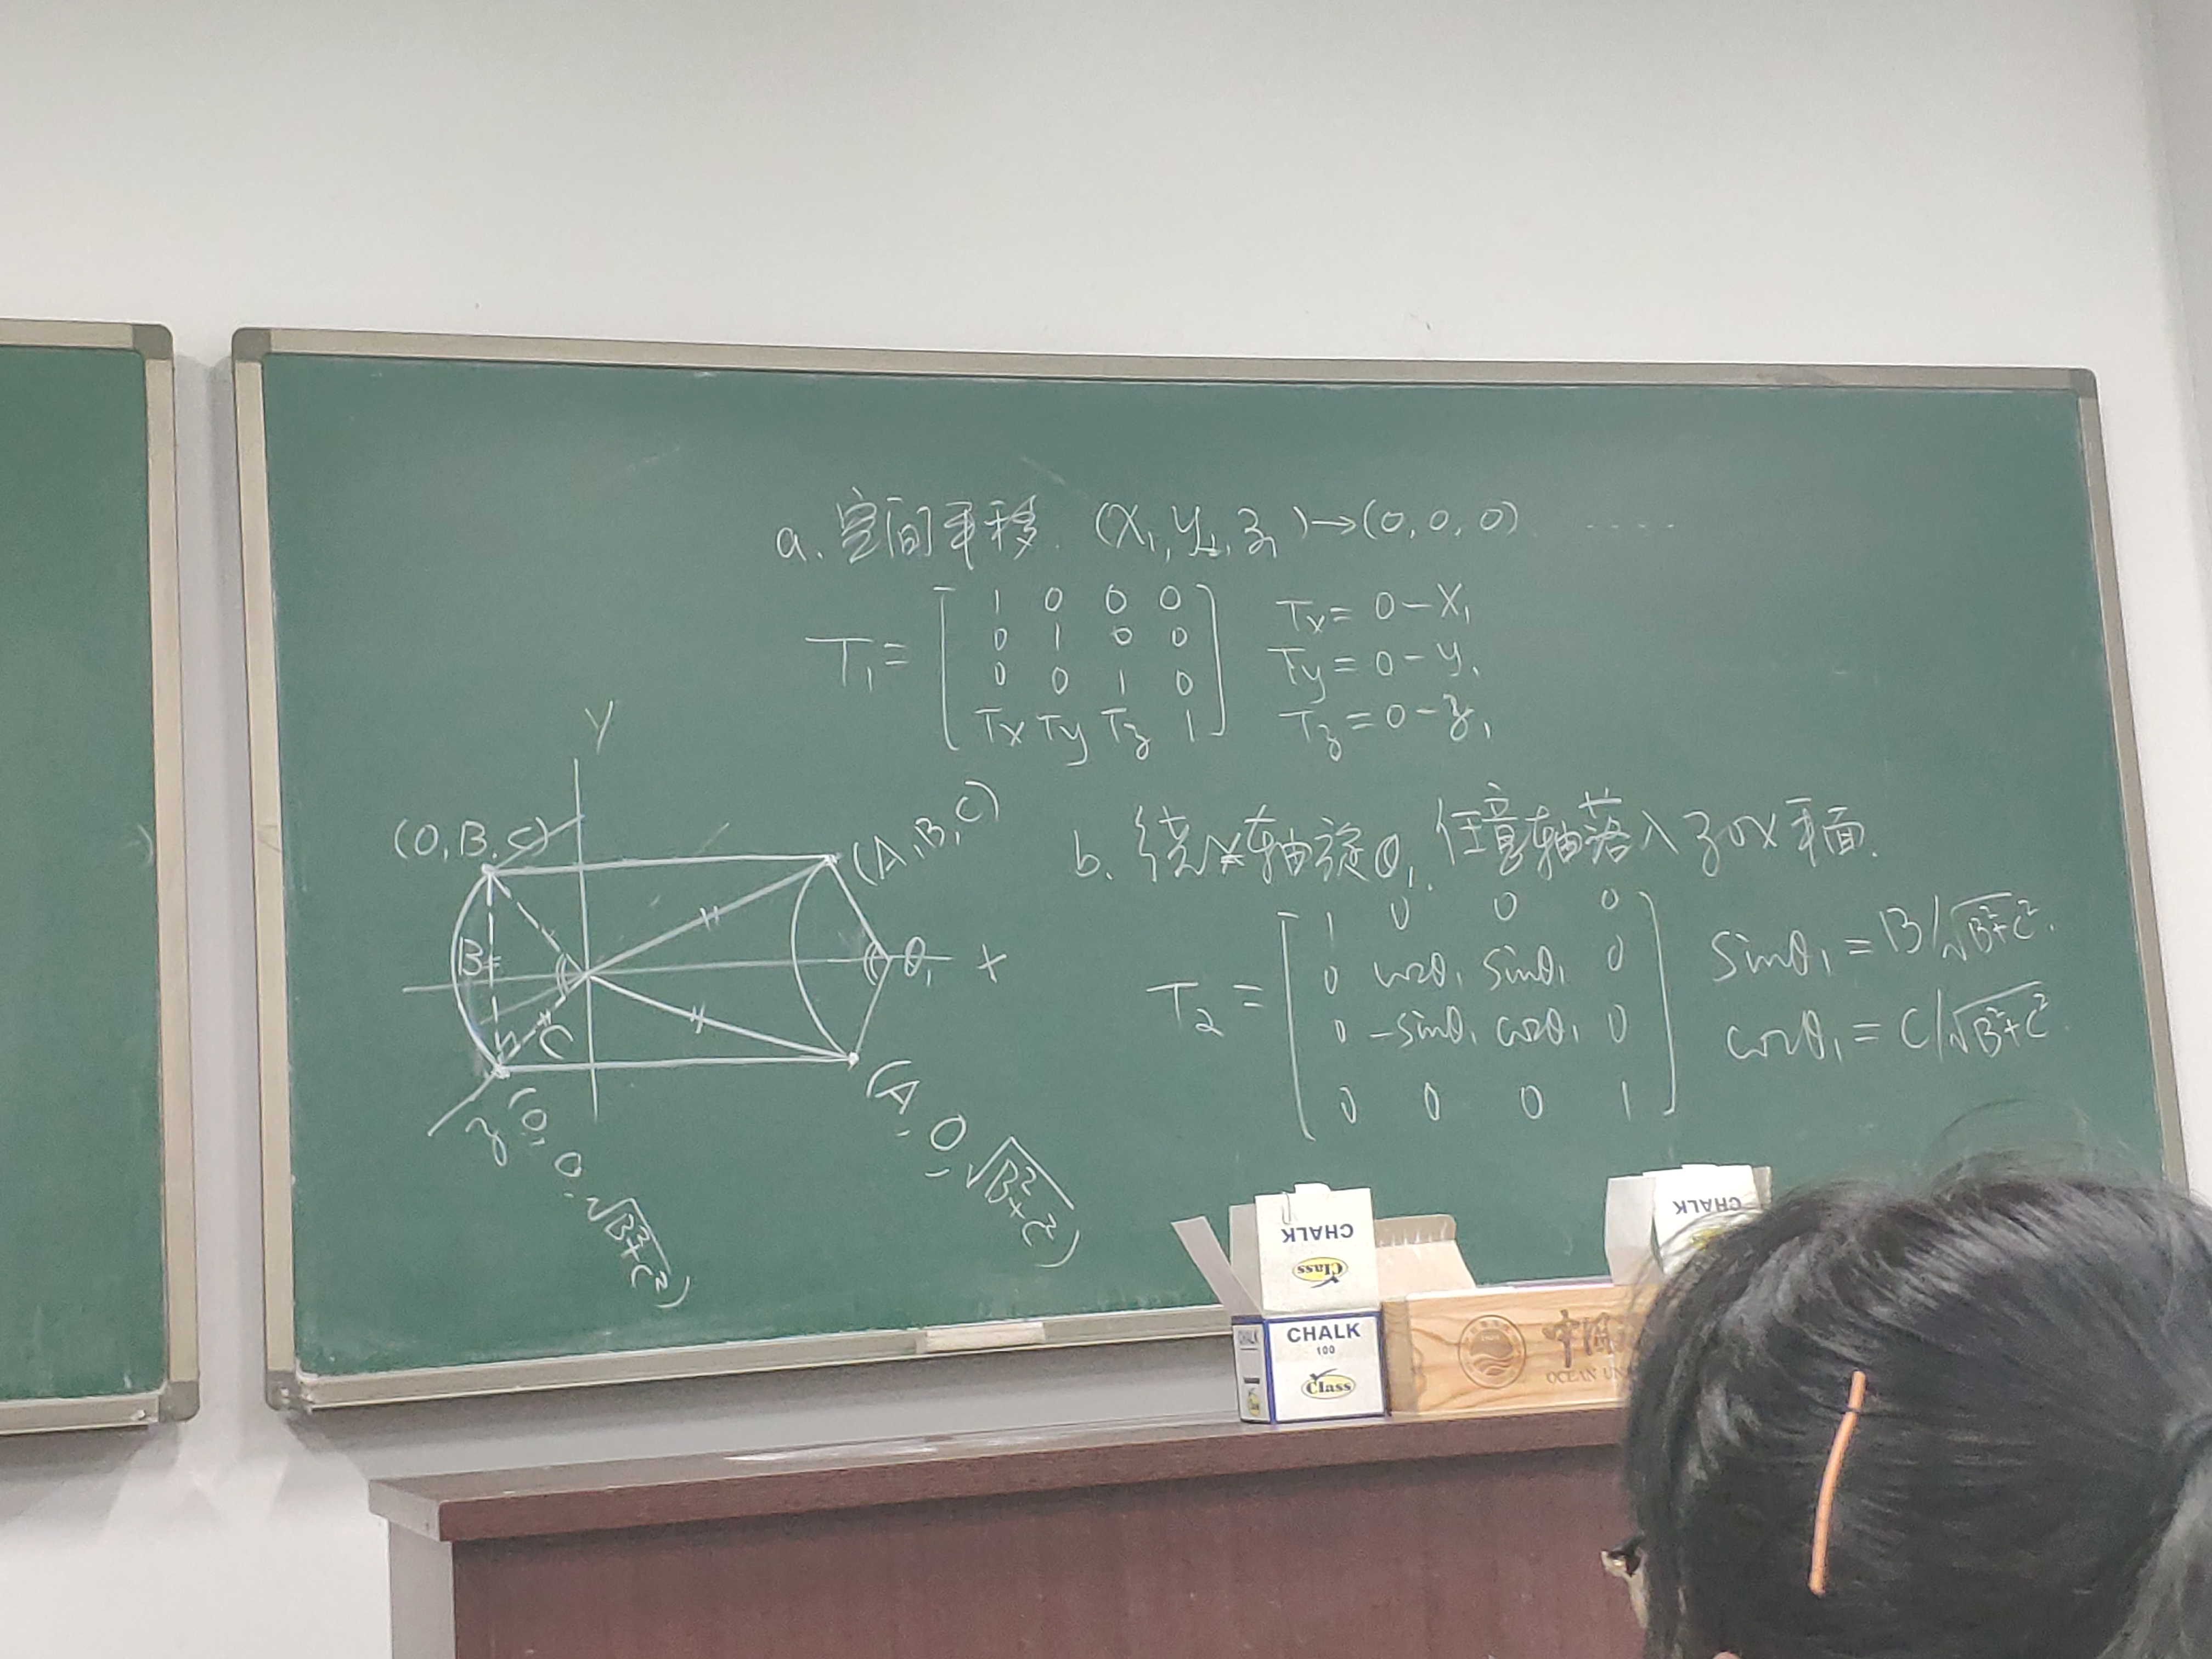 a. 空间平移. (X₁, y₁, z₁) → (0, 0, 0) ·····
T₁ = [ 1 0 0 0
0 1 0 0
0 0 1 0
Tx Ty Tz 1 ]
Tx = 0 - X₁
Ty = 0 - y₁
Tz = 0 - z₁
Y
(0, B, C)
(A, B, C)
B
C
θ₁
X
z
(0, 0, √B²+C²)
(A, 0, √B²+C²)
b. 绕X轴旋θ₁, 任意轴落入zox平面.
T₂ = [ 1 0 0 0
0 cosθ₁ sinθ₁ 0
0 -sinθ₁ cosθ₁ 0
0 0 0 1 ]
sinθ₁ = B/√B²+C².
cosθ₁ = C/√B²+C²
CHALK
Class
CHALK
CHALK
100
Class
CHALK
中国
OCEAN UN